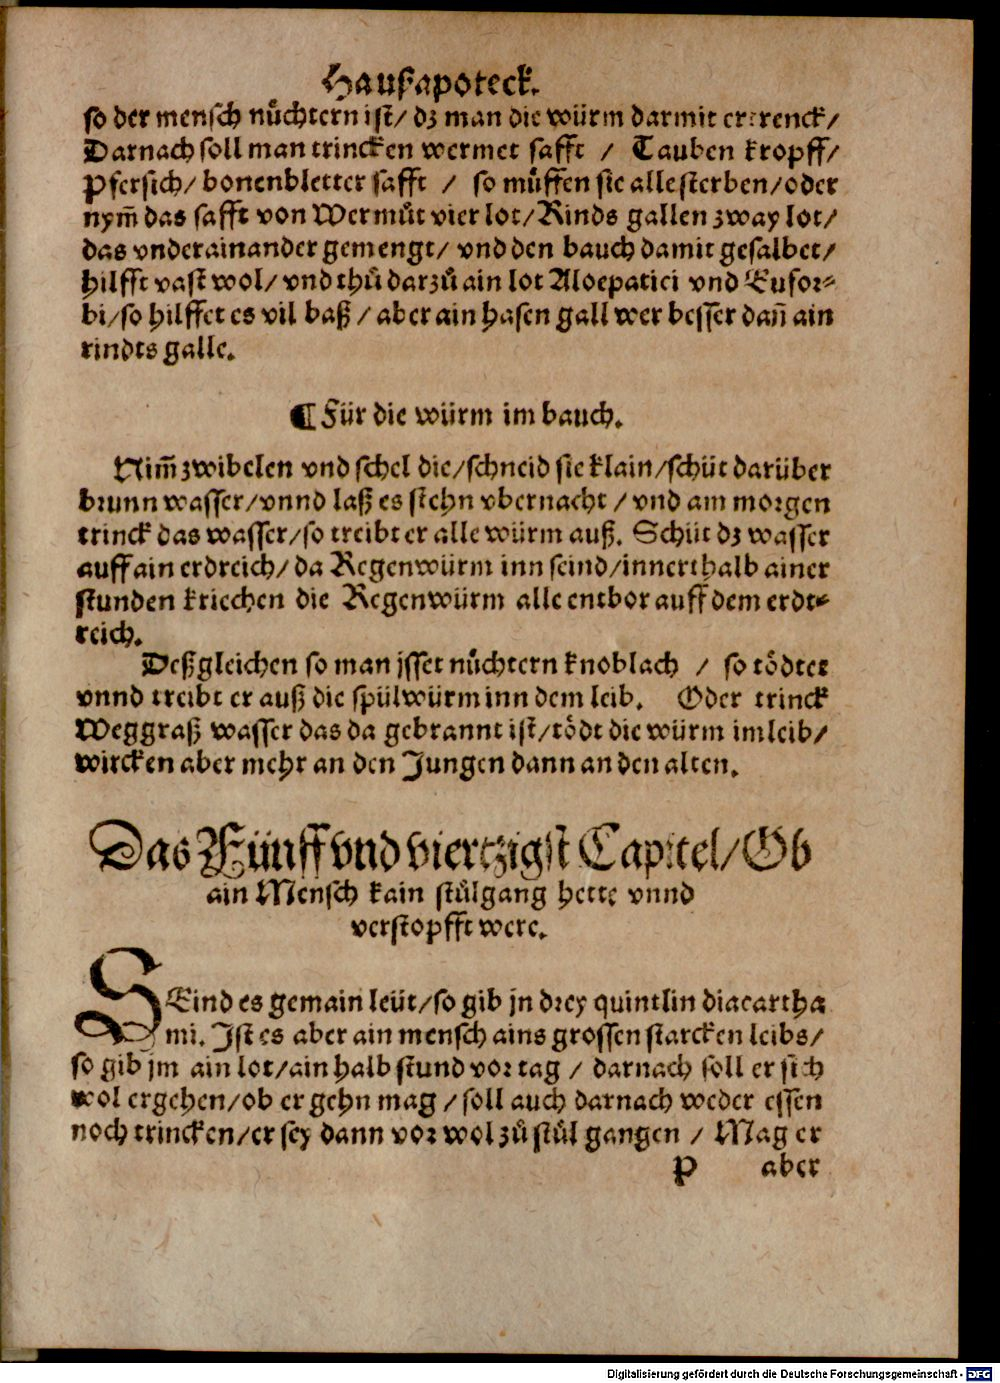 Haußapoteck.
so der mensch nůchtern ist/ dz man die würm darmit ertrenck/
Darnach soll man trincken wermet safft / Tauben kropff/
Pfersich/ bonenbletter safft / so müssen sie alle sterben/oder
nym̃ das safft von Wermůt vier lot/Rinds gallen zway lot/
das vnderainander gemengt/ vnd den bauch damit gesalbet/
hilfft vast wol/ vnd thů darzů ain lot Aloepatici vnd Eufor-
bi/so hilffet es vil baß / aber ain hasen gall wer besser dañ ain
rindts galle.
¶ Für die würm im bauch.
Nim̃ zwibelen vnd schel die/schneid sie klain/schüt darüber
brunn wasser/vnnd laß es stehn vbernacht / vnd am morgen
trinck das wasser/so treibt er alle würm auß. Schüt dz wasser
auff ain erdreich/ da Regenwürm inn seind/innerthalb ainer
stunden kriechen die Regenwürm alle entbor auff dem erdt-
reich.
Deßgleichen so man jsset nůchtern knoblach / so tödtet
vnnd treibt er auß die spülwürm inn dem leib. Oder trinck
Weggraß wasser das da gebrannt ist/tödt die würm im leib/
wircken aber mehr an den Jungen dann an den alten.
Das Fünff vnd viertzigst Capitel/Ob
ain Mensch kain stůlgang hette vnnd
verstopfft were.
SEind es gemain leüt/so gib jn drey quintlin diacartha
mi. Ist es aber ain mensch ains grossen starcken leibs/
so gib jm ain lot/ain halb stund vor tag / darnach soll er sich
wol ergehen/ob er gehn mag / soll auch darnach weder essen
noch trincken/er sey dann vor wol zů stůl gangen / Mag er
P aber
Digitalisierung gefördert durch die Deutsche Forschungsgemeinschaft - DFG